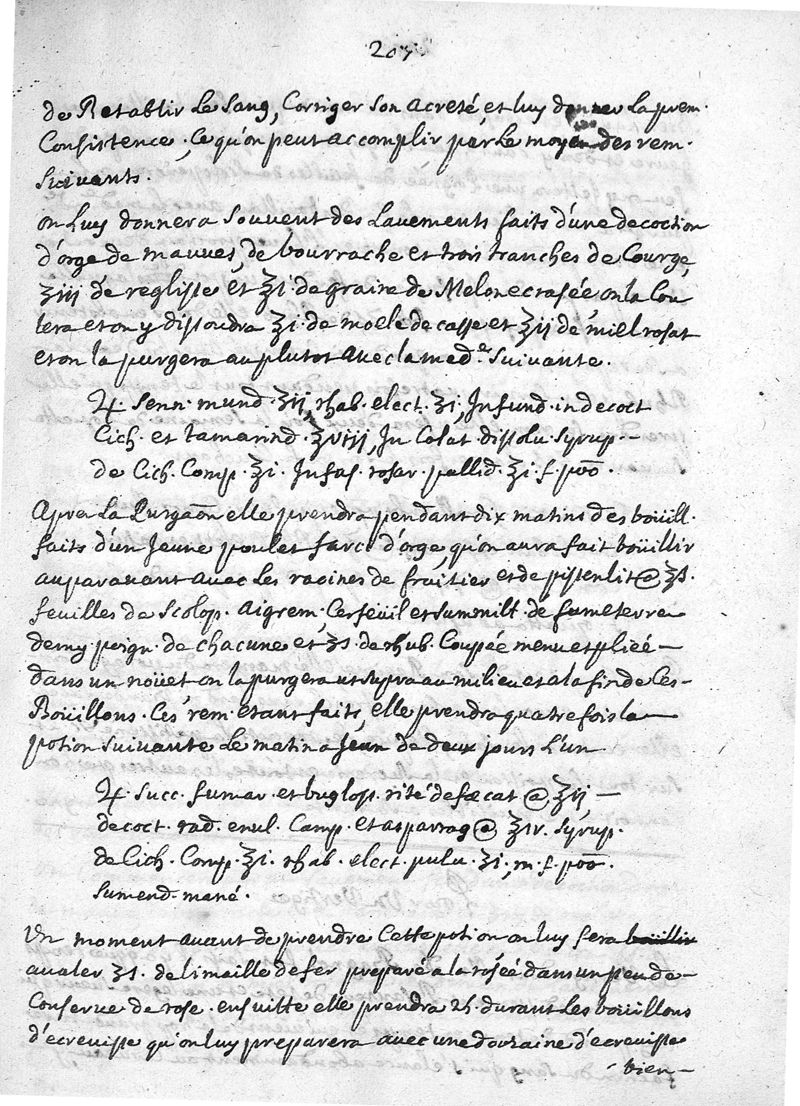 207
de Retablir Le Sang, Corriger Son acreté, et luy donner La prem.
Consistence; Ce qu'on peut accomplir par Le moyen des rem.
Suivants.
on Luy donnera Souvent des Lavements faits d'une decoction
d'orge de mauves, de bourrache et trois tranches de Courge,
ʒiij de reglisse et ℥i. de graine de Melon ecrasée on la Cou
lera et on y dissoudra ℥i. de moele de casse et ℥ij de miel rosat
et on la purgera au plutot avec la med.e Suivante.
♃. Senn. mund. ʒij, rhab. elect. ʒi, Infund. in decoct
Cich. et tamarind. ℥viij, In Colat dissolu. Syrup. –
de Cich. Comp. ℥i. Infus. rosar. pallid. ℥i. f. poõ.
Apres La Purgaõn elle prendra pendant dix matins des boüill.
faits d'un Jeune poulet farci d'orge, qu'on aura fait boüillir
auparavant avec Les racines de fraitier et de pissenlit @ ℥s.
feuilles de Scolop. Aigrem, Cerfeüil et Summit. de fumeterre
demy poign. de chacune et ʒs. de rhub. Coupée menu et pliée –
dans un noüet on la purgera ut supra au milieu et a la fin de Ces –
Boüillons. Ces rem. etant faits, elle prendra quatre fois la –
potion Suivante Le matin a Jeun de deux jours L'un
♃. Succ. fumar. et buglos. rité defæcat @ ℥ij, –
decoct. rad. enul. Camp. et asparrag @ ℥iv. Syrup.
de Cich. Comp. ℥i. rhab. elect. pulu. ʒi, m. f. poõ.
Sumend. mané.
Un moment avant de prendre Cette potion on luy fera boüillir
avaler ʒs. de limaille de fer preparé a la rosée dans un peu de –
Conserve de rose. ensuitte elle prendra durant Les boüillons
d'ecrevisse qu'on luy preparera avec une douzaine d'ecrevisse
bien –